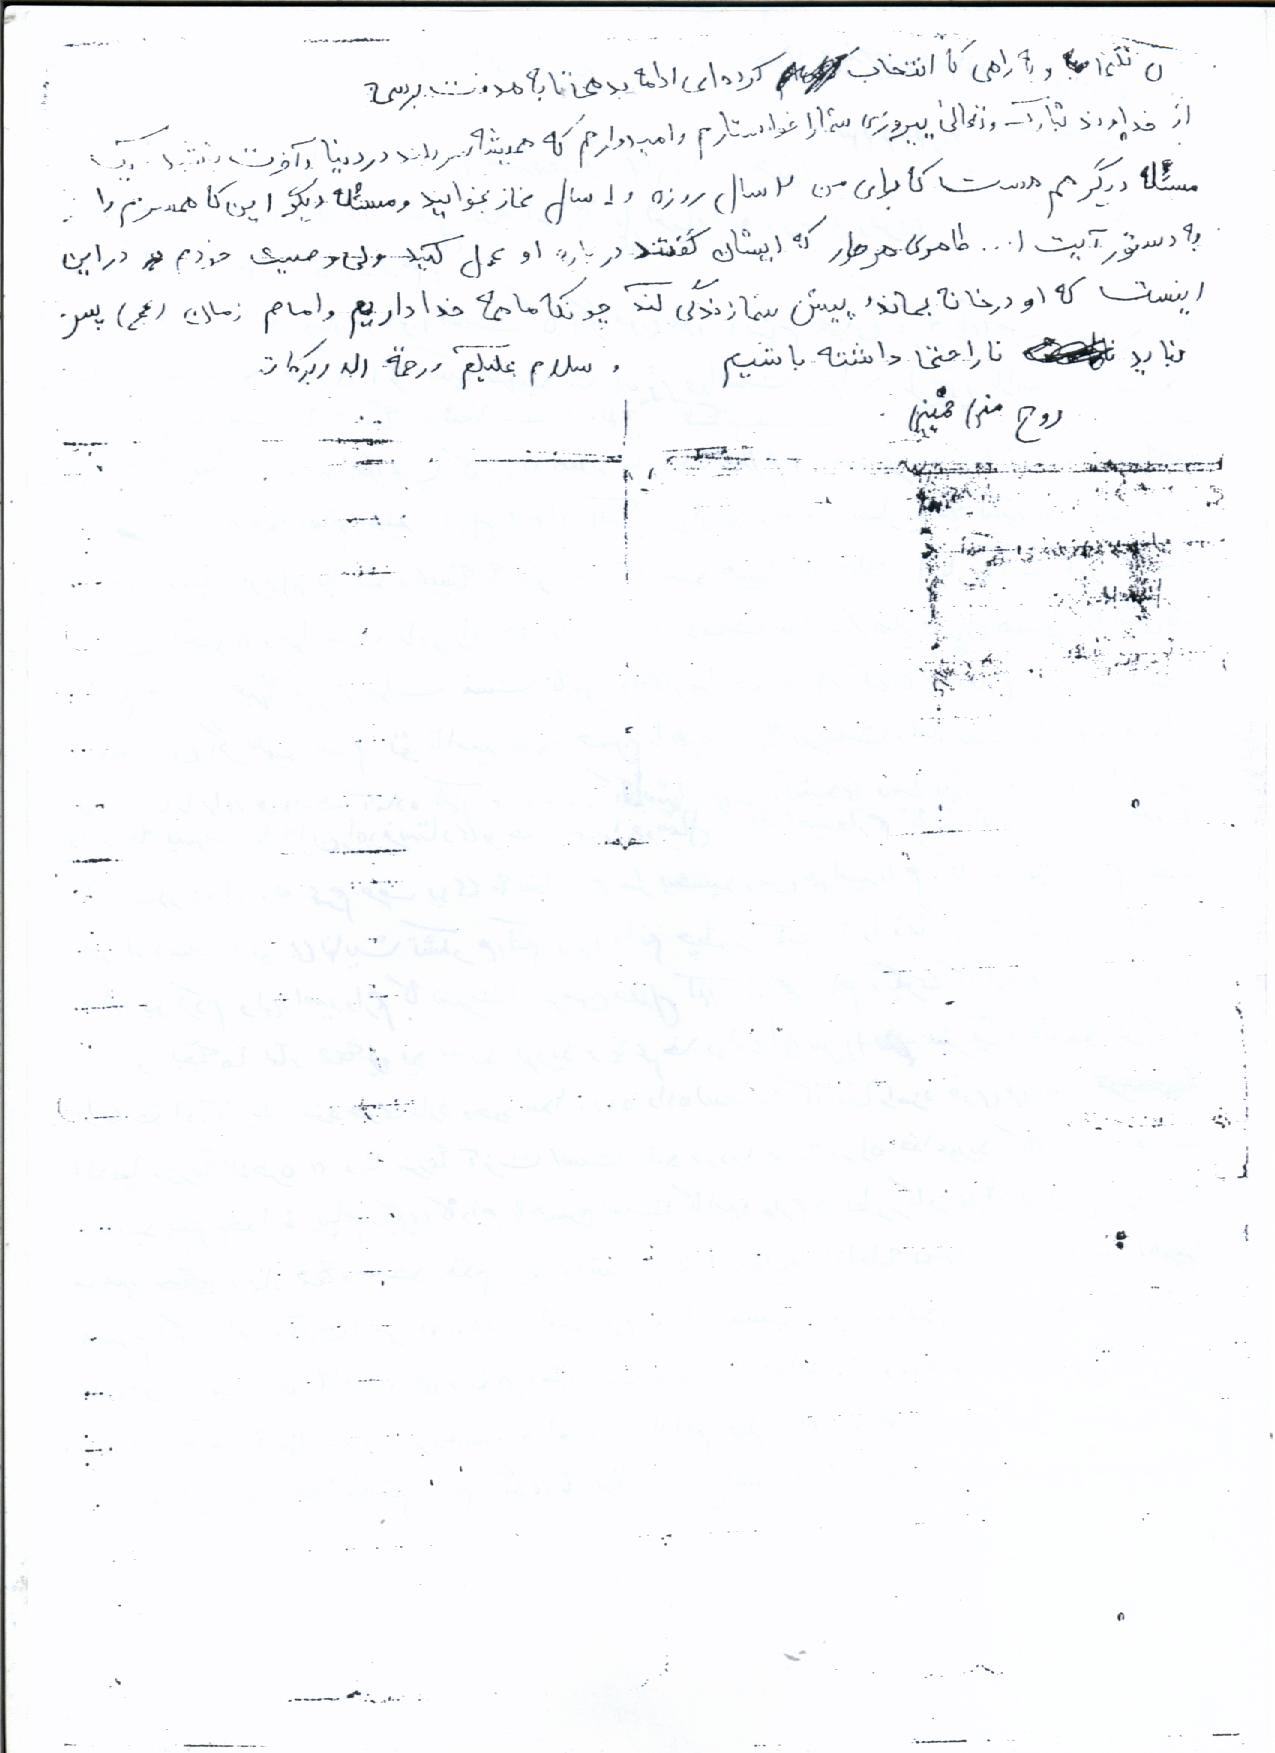 و به راهی کا انتخاب کرده‌ای ادامه بدهی تا به هدفت برسی
از خداوند تبارک وتعالی پیروزی شما را خواستارم و امیدوارم که همیشه سربلند در دنیا و آخرت باشید. یک
مسئله دیگر هم هست کا برای من ۲ سال روزه و ۱ سال نماز بخوانید و مسئله دیگر این کا همسرم را
به دستور آیت ا... طاهری هر طور که ایشان گفتند درباره او عمل کنید ولی وصیت خودم در این
اینست که او در خانه بماند پیش شما زندگی کند چونکه ما همه خدا داریم و امام زمان (عج) پس
نباید ناراحتی داشته باشیم و سلام علیکم ورحمة اله وبرکات
روح منی خمینی